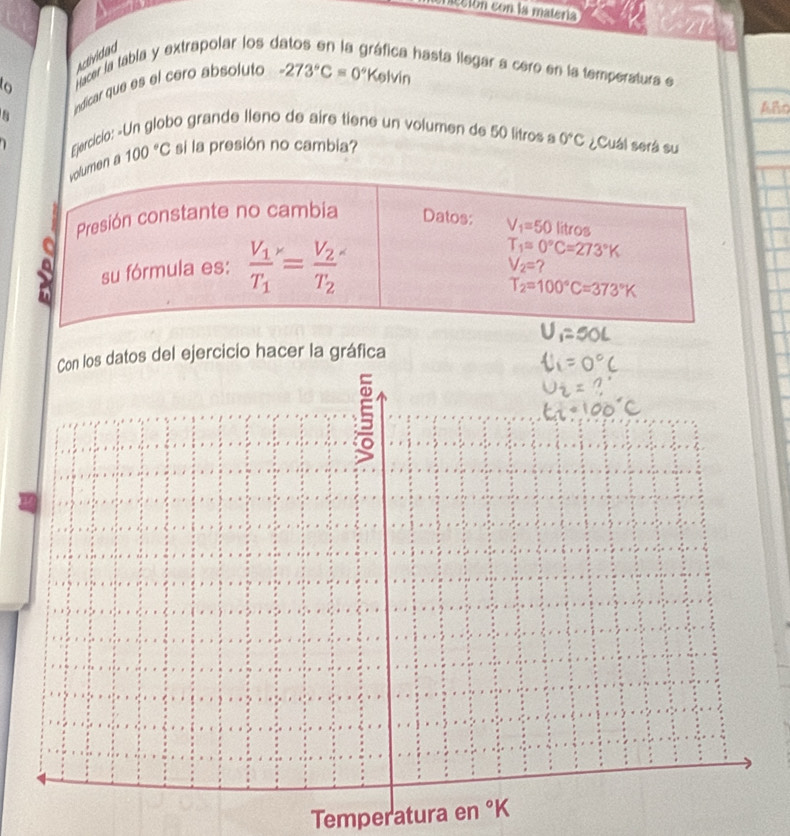 con la materia
Actividad
Hacer la tabla y extrapolar los datos en la gráfica hasta llegar a cero en la temperatura e
indicar que es el cero absoluto -273°C = 0°Kelvin
Año
Ejercicio: -Un globo grande lleno de aire tiene un volumen de 50 litros a 0°C ¿Cuál será su
volumen a 100 °C si la presión no cambia?
Presión constante no cambia
su fórmula es: V₁/T₁ = V₂/T₂
Datos: V₁=50 litros
T₁= 0°C=273°K
V₂=?
T₂=100°C=373°K
V₁=50L
Con los datos del ejercicio hacer la gráfica
t₁=0°C
V₂=?
t₂=100°C
Volumen
Temperatura en °K